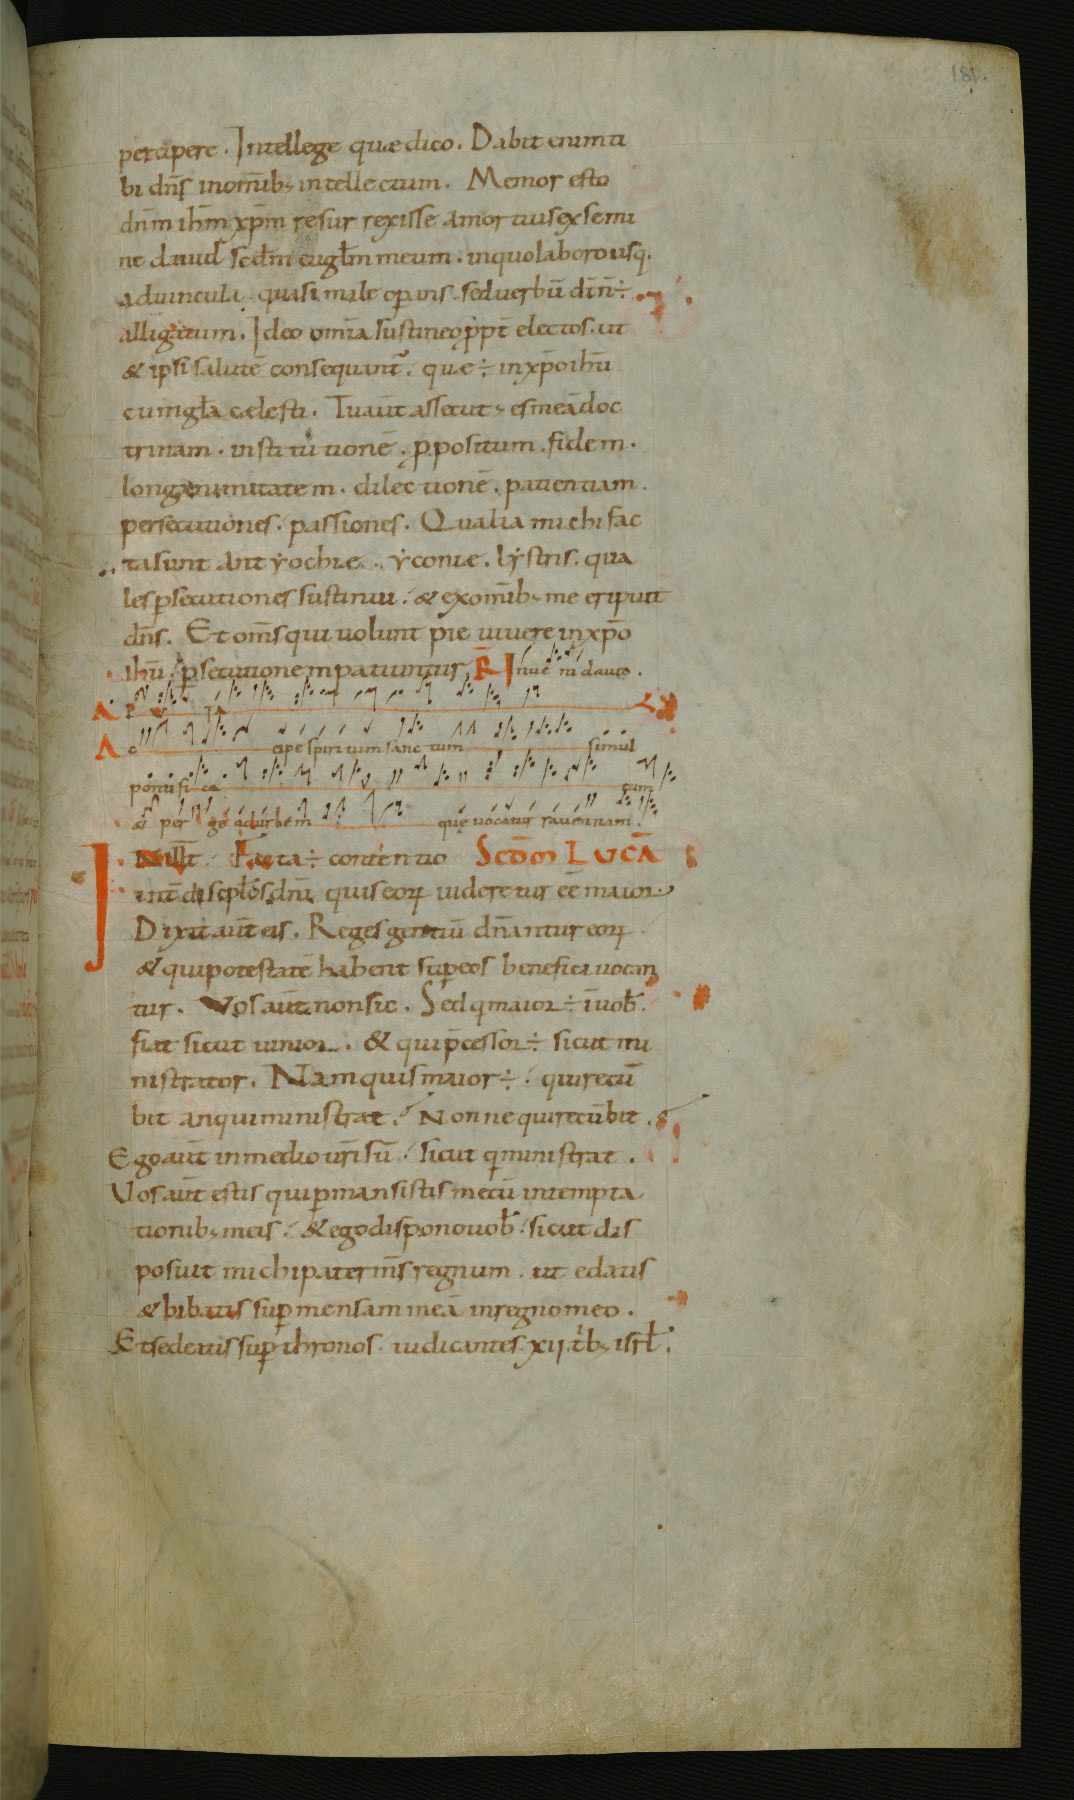 181.
percipere . Intellege quae dico . Dabit enim ti
bi dñs inomīb; intellectum . Memor esto
dñm ihm xp̄m resurrexisse amortuis exsemi
ne dauid scđm euglm̄ meum . inquo laboro usq.
aduincula quasi male opans . sed uerbū dīn ÷
alligatum . Ideo omīa sustineo ppt̄ electos . ut
& ipsi salutē consequant̄ . quae ÷ inxp̄o ihū
cumgl̄a caelesti . Tu aūt assecut; es meā doc
trinam . institutionē . ppositum . fidem .
longanimitatem . dilectionē . patientiam .
persecutiones . passiones . Qualia michi fac
ta sunt antyochiae . yconiae . lystris . qua
les psecutiones sustinui . & exomīb; me eripuit
dñs . Et oms̄ qui uolunt pie uiuere inxp̄o
ihū . psecutionem patiuntur . R̄ Inueni dauid .
A
A c cipe spiritum sanctum simul
pontifica tum
& pergead urbem quę uocatur rauennam .
IN illt̄ Facta ÷ contentio SCDM LVCĀ
int̄ discipłos dñi quis eoꝝ uideretur eē maior .
Dixit aūt eis . Reges gentiū dñantur eoꝝ .
& qui potestatē habent sup eos benefici uocan
tur . Vos aūt non sic . Sed q maior ÷ ī uob̄ .
fiat sicut iunior . & qui pcessor ÷ sicut mi
nistrator . Nam quis maior ÷ . qui recū
bit an qui ministrat . Nonne qui recūbit .
Ego aūt inmedio uri sū . sicut q ministrat .
Vos aūt estis qui pmansistis mecū intempta
tionib; meis . & ego dispono uob̄ . sicut dis
posuit michi pater ms̄ regnum . ut edatis
& bibatis sup mensam meā inregno meo .
Et sedeatis sup thronos . iudicantes xii trib; isrl̄ .